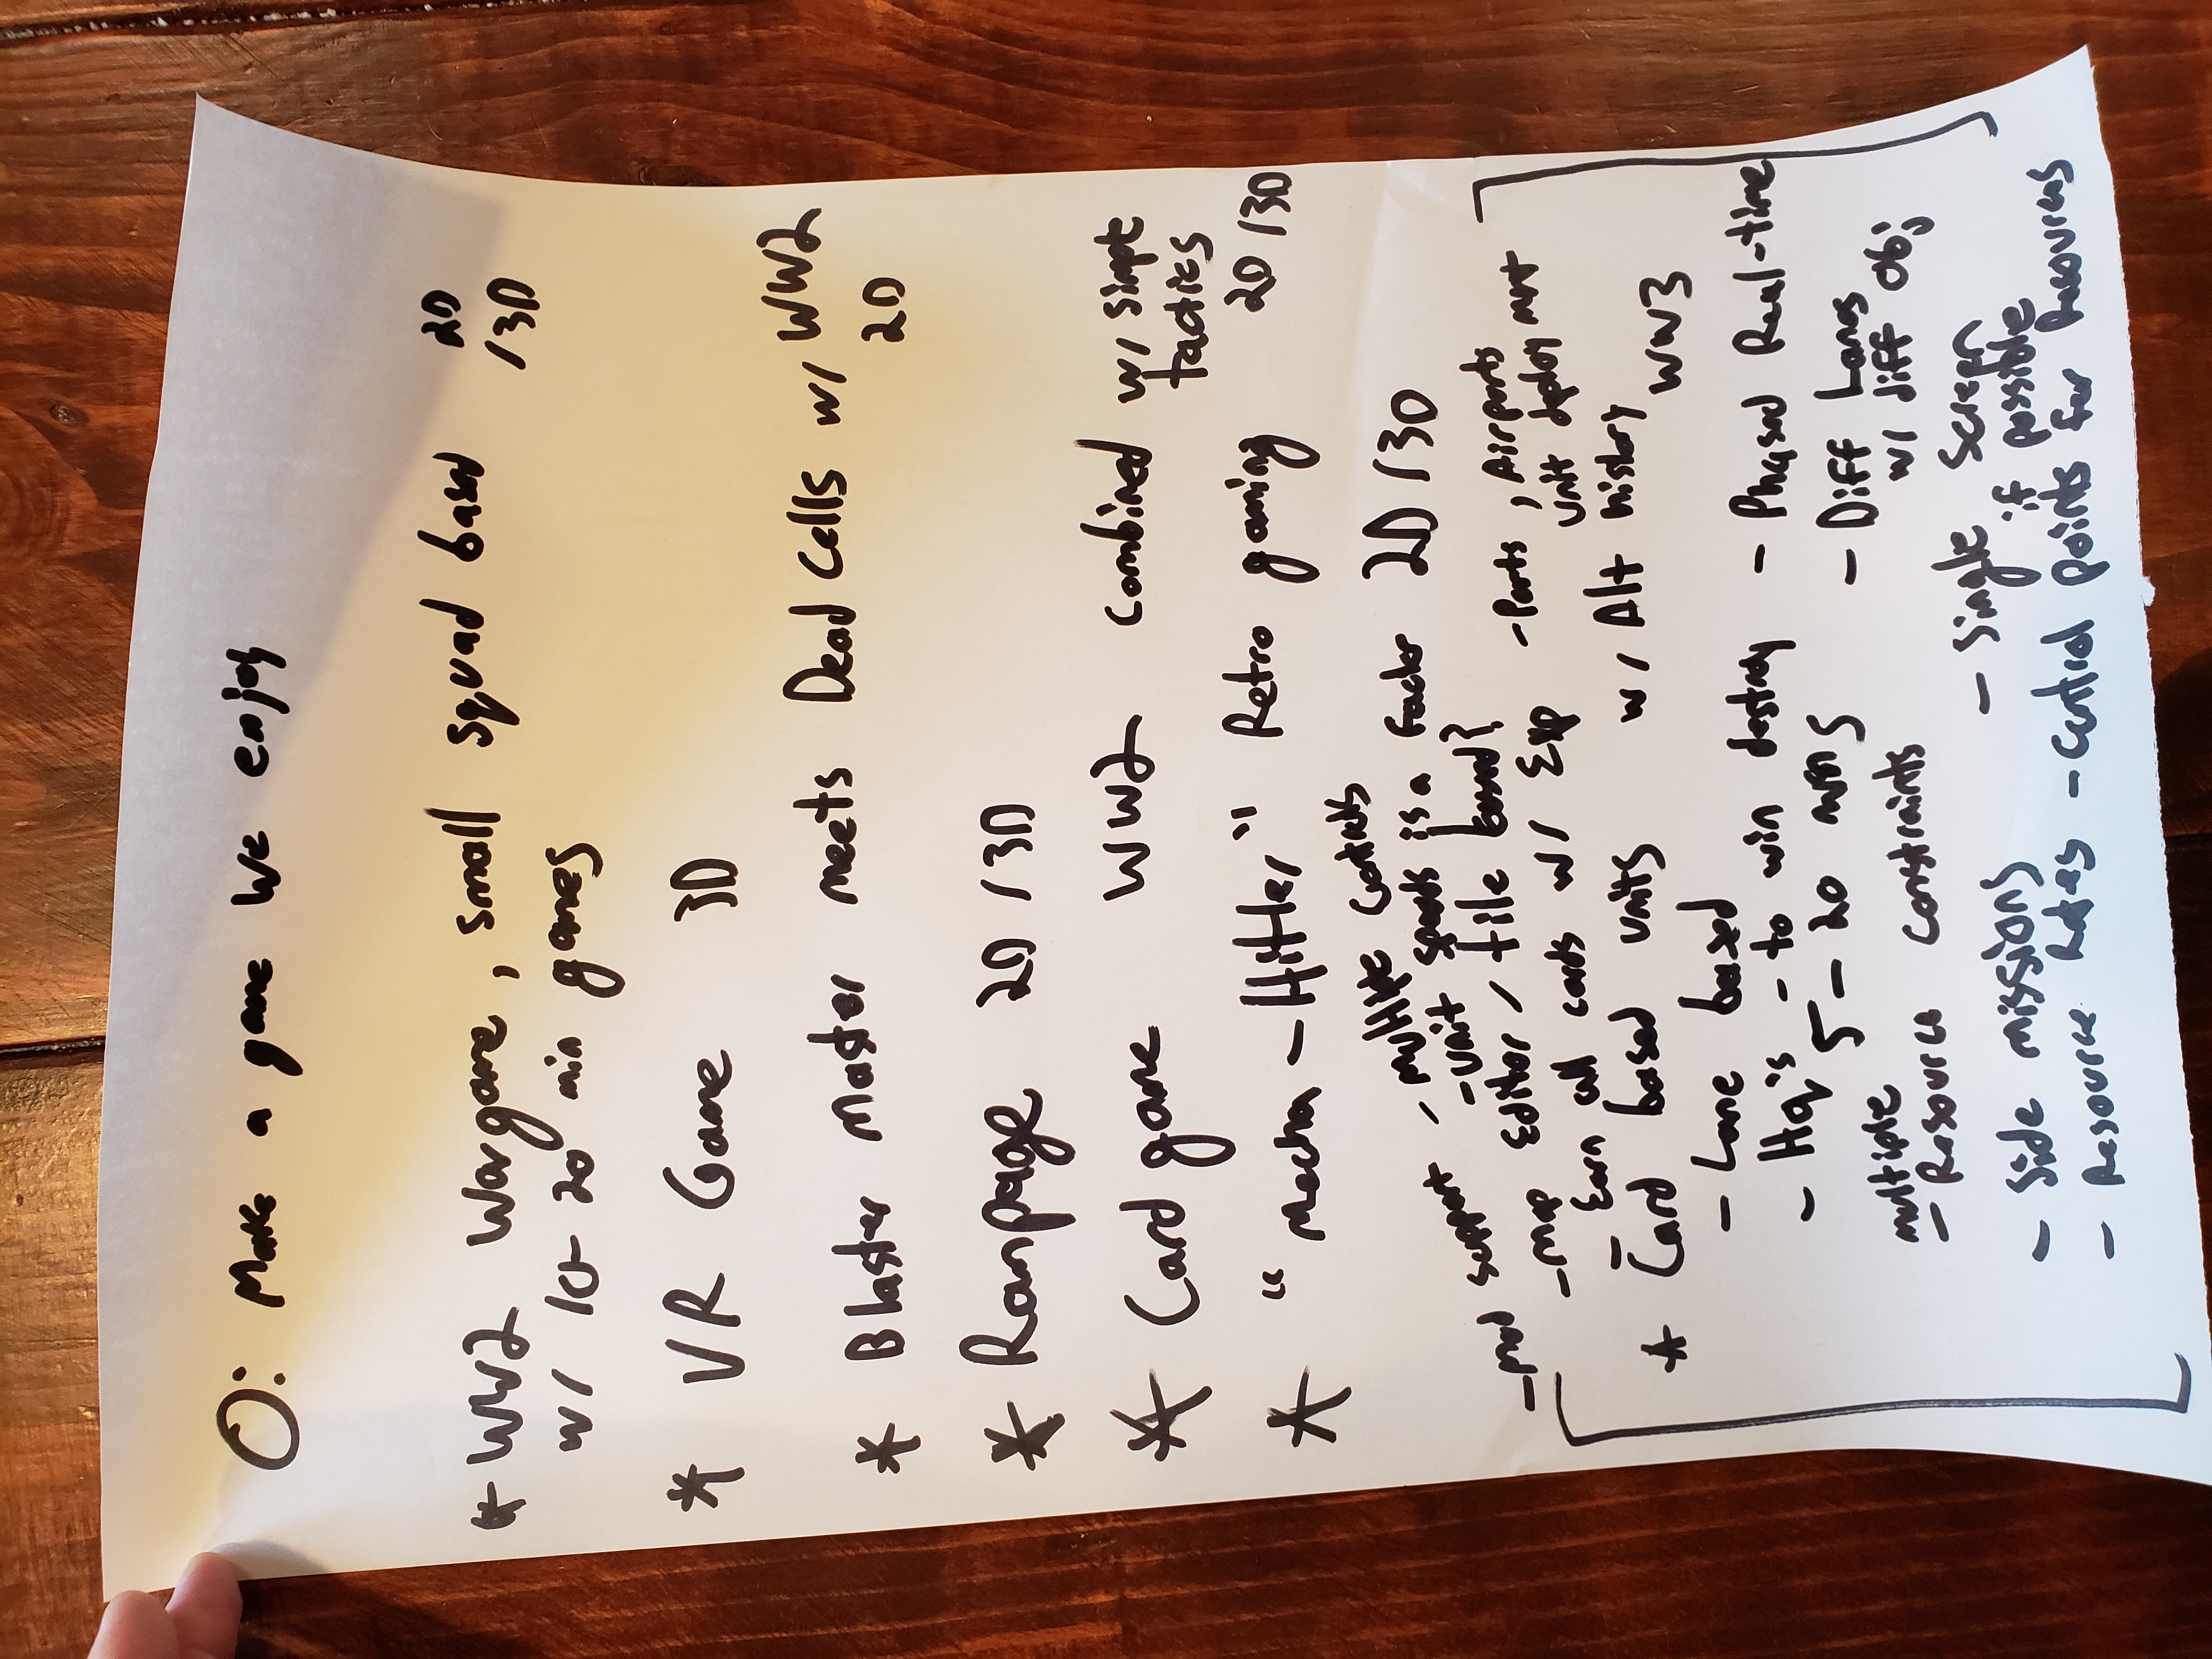 O: Make a game we enjoy
* WW2 Wargame, small squad based 2D
/3D
w/ 10-20 min games
* VR Game 3D
* Blaster Master meets Dead Cells w/ WW2
2D
* Rampage 2D / 3D
* Card game WW2 Combined w/ simple
tactics
* "Mecha-Hitler" Retro gaming 2D /3D
- Multiple Controls
- Mod support
- Unit speeds is a factor 2D /3D
- Map Editor / tile based?
- Earn all cards w/ Exp
- Ports, Airports
Unit deployment
* Card based units w/ Alt history
WW3
- Lane based
- HQ's - to win destroy
5-20 mins
- Phased Real-time
- Diff Lanes
w/ diff Obj
multiple
- Resource constraints
- Single Screen
if possible
- Side missions
- Resource Rates
- Control points for Resources